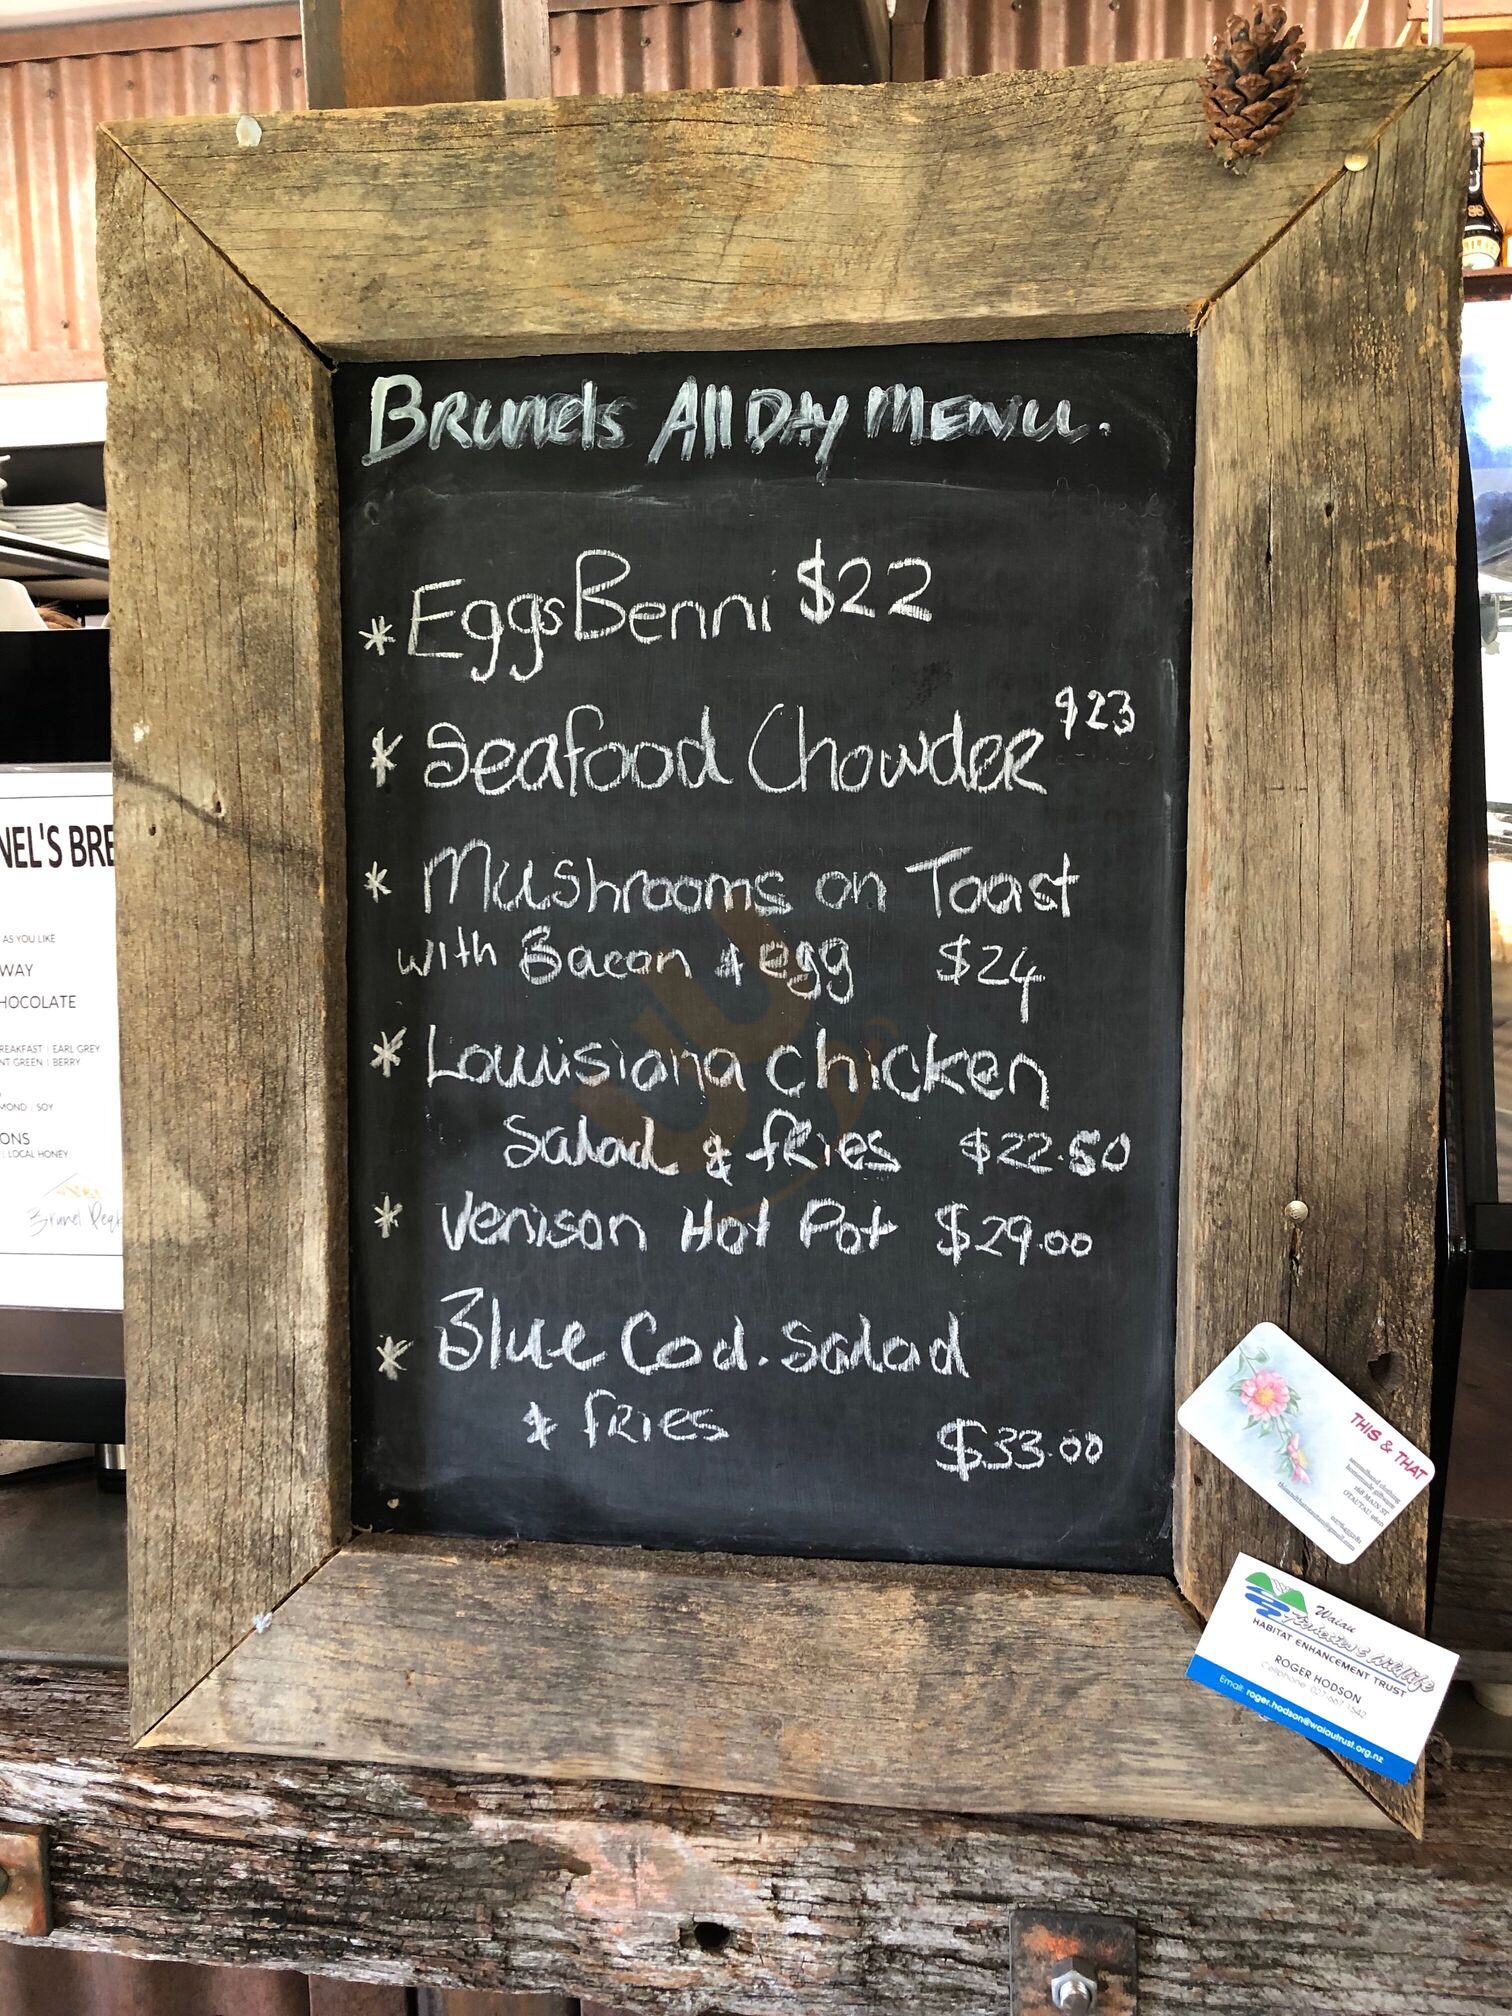 Brunels All Day MENU.
* Eggs Benni $22
* Seafood Chowder $23
* Mushrooms on Toast
with Bacon & egg $24
* Louisiana chicken
Salad & fries $22.50
* Venison Hot Pot $29.00
* Blue Cod. Salad
& fries
$33.00
NEL'S BRE
AS YOU LIKE
WAY
HOCOLATE
REAKFAST | EARL GREY
NT GREEN | BERRY
MOND | SOY
ONS
| LOCAL HONEY
THIS & THAT
secondhand clothing
homemade giftware
168 MAIN ST
OTAUTAU 9610
Waiau
Fisheries & Wildlife
HABITAT ENHANCEMENT TRUST
ROGER HODSON
Cellphone: 027 667 1542
Email: roger.hodson@waiautrust.org.nz